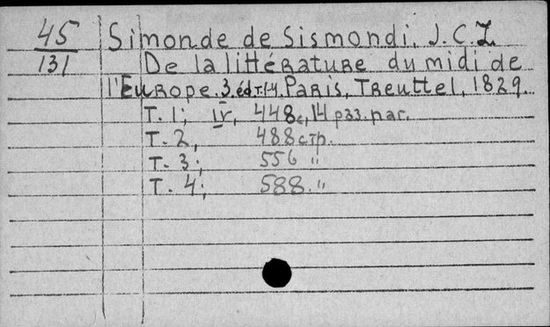 45 Simonde de Sismondi, J.C.L
131 De la littérature du midi de
l'Europe. 3. éd. т.1-4. Paris, Treuttel, 1829.
Т. 1; IV, 448с, 14 рзз. паг.
Т. 2, 488 стр.
Т. 3; 556 "
Т. 4; 588. "